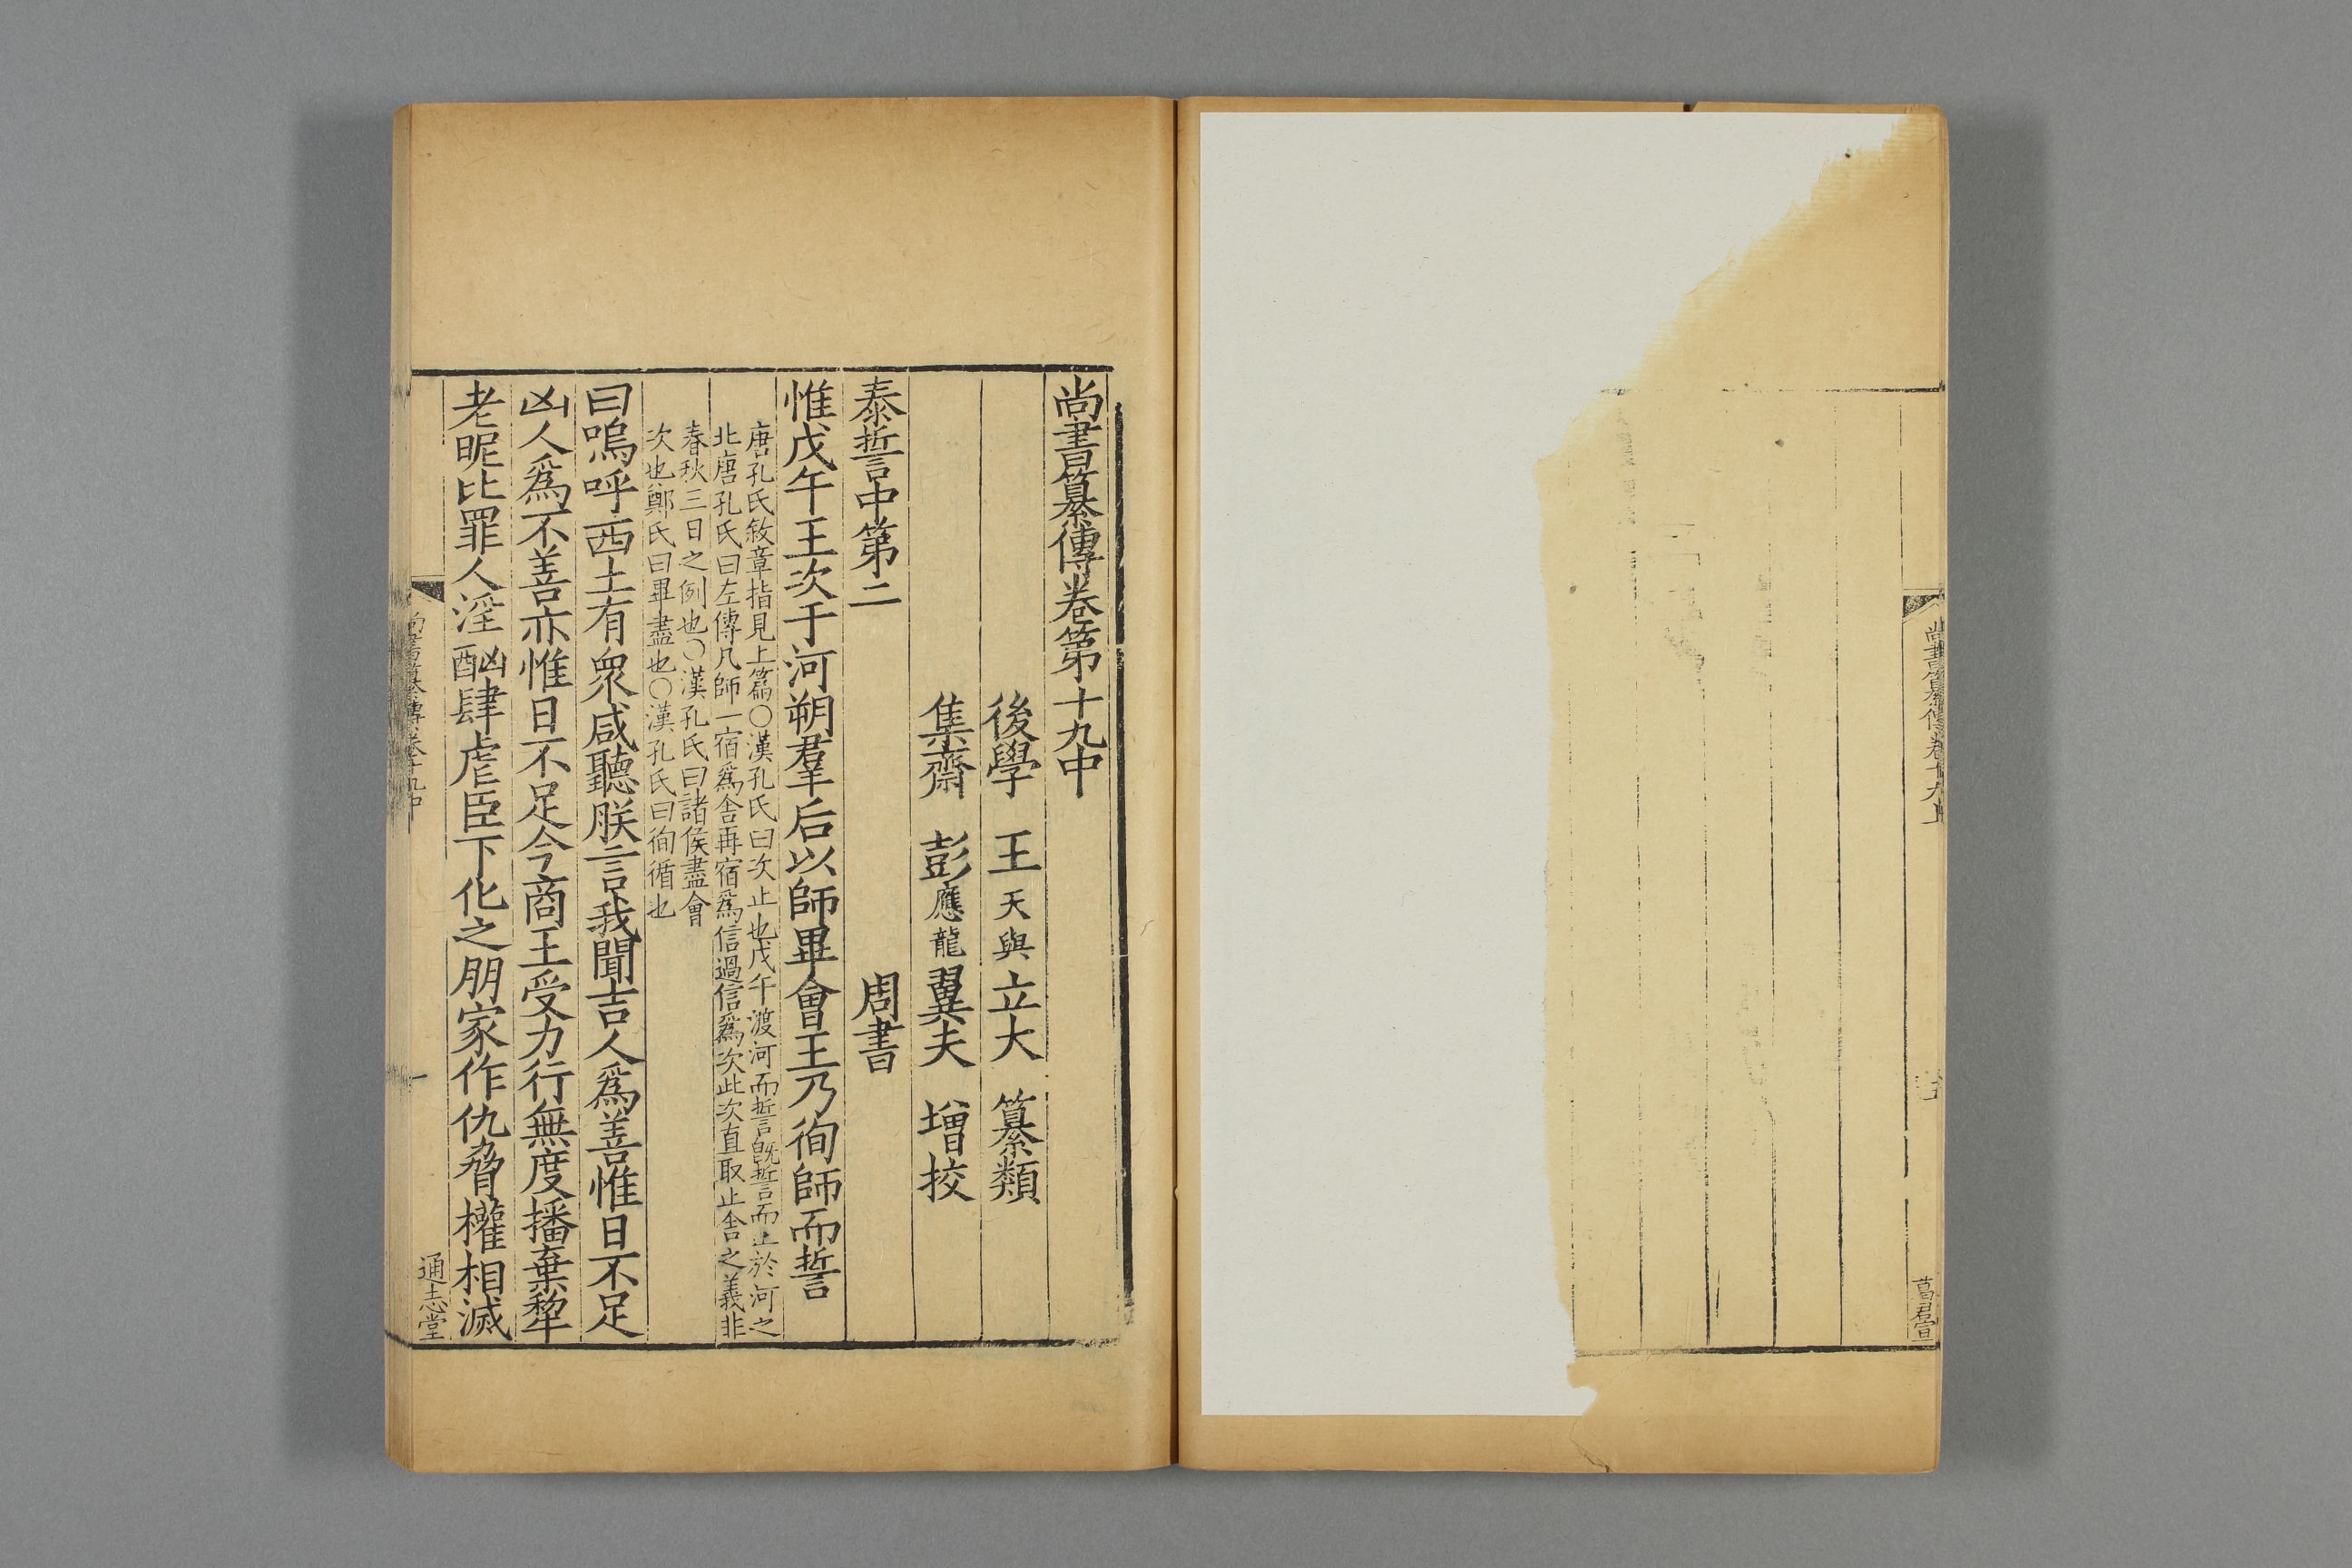 尚書纂傳卷十九上
葛君宣
尚書纂傳卷第十九中
後學 王天與立大 纂類
集齋 彭應龍翼夫 增挍
泰誓中第二 周書
惟戊午王次于河朔羣后以師畢會王乃徇師而誓
唐孔氏敘章指見上篇〇漢孔氏曰次止也戊午渡河而誓旣誓而止於河之
北唐孔氏曰左傳凡師一宿爲舍再宿爲信過信爲次此次直取止舍之義非
春秋三日之例也〇漢孔氏曰諸侯盡會
次也鄭氏曰畢盡也〇漢孔氏曰徇循也
曰嗚呼西土有衆咸聽朕言我聞吉人爲善惟日不足
凶人爲不善亦惟日不足今商王受力行無度播棄犂
老昵比罪人淫酗肆虐臣下化之朋家作仇脅權相滅
尚書纂傳卷十九中
一
通志堂